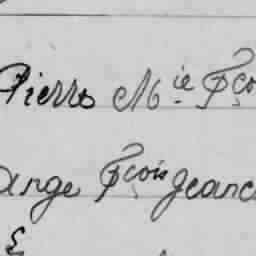 Pierre M.ie Fço
ange Fçois Jeanc